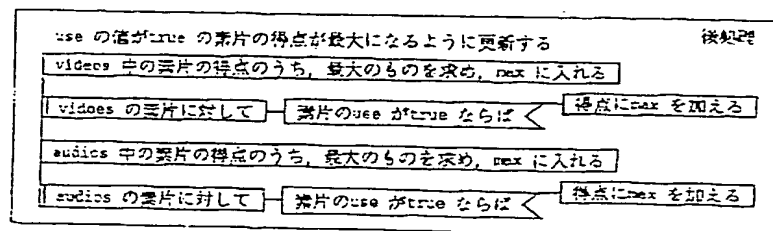 use の値がtrue の素片の得点が最大になるように更新する 後処理
videos 中の素片の得点のうち, 最大のものを求め, max に入れる
vidoes の素片に対して 素片のuse がtrue ならば 得点にmax を加える
audios 中の素片の得点のうち, 最大のものを求め, max に入れる
audios の素片に対して 素片のuse がtrue ならば 得点にmax を加える